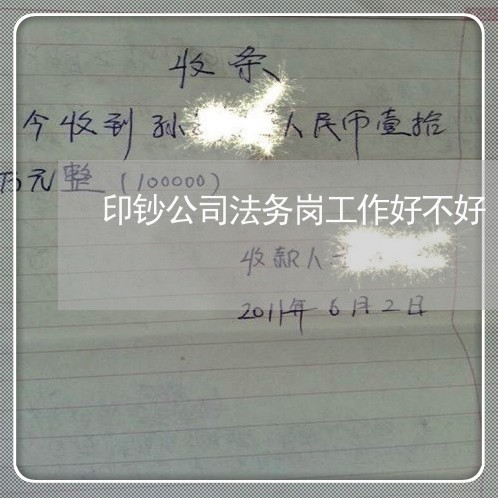 收条
今收到孙 人民币壹拾
万元整(100000)
印钞公司法务岗工作好不好
收款人
2011年6月2日